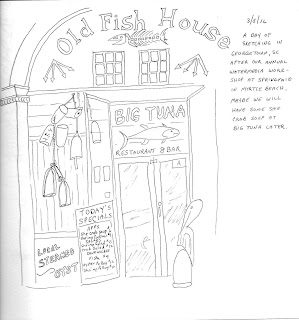 Old Fish House
3/5/16
A DAY OF
SKETCHING IN
GEORGETOWN, SC
AFTER OUR ANNUAL
WATERMEDIA WORK-
SHOP AT SPRINGMAID
IN MYRTLE BEACH.
MAYBE WE WILL
HAVE SOME SHE
CRAB SOUP AT
BIG TUNA LATER.
BIG TUNA
RESTAURANT & BAR
TODAY'S
SPECIALS
APPS
LOCAL
STEAMED
OYST